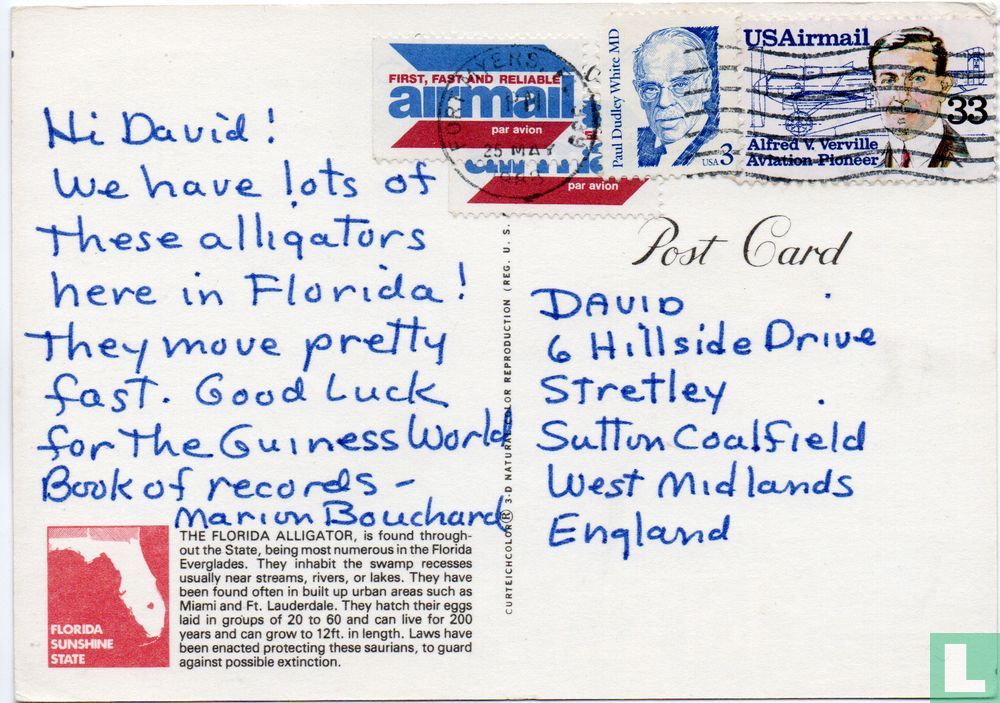 FIRST, FAST AND RELIABLE
airmail
par avion
airmail
par avion
FORT MYERS, FL
PM
25 MAY
Paul Dudley White MD
USA 3
USAirmail
33
Alfred V. Verville
Aviation Pioneer
Hi David!
We have lots of
these alligators
here in Florida!
They move pretty
fast. Good Luck
for The Guiness World
Book of records –
Marion Bouchard
Post Card
DAVID
6 Hillside Drive
Stretley
Sutton Coalfield
West Midlands
England
CURTEICHCOLOR® 3-D NATURAL COLOR REPRODUCTION (REG. U. S.
FLORIDA
SUNSHINE
STATE
THE FLORIDA ALLIGATOR, is found through-
out the State, being most numerous in the Florida
Everglades. They inhabit the swamp recesses
usually near streams, rivers, or lakes. They have
been found often in built up urban areas such as
Miami and Ft. Lauderdale. They hatch their eggs
laid in groups of 20 to 60 and can live for 200
years and can grow to 12ft. in length. Laws have
been enacted protecting these saurians, to guard
against possible extinction.
L